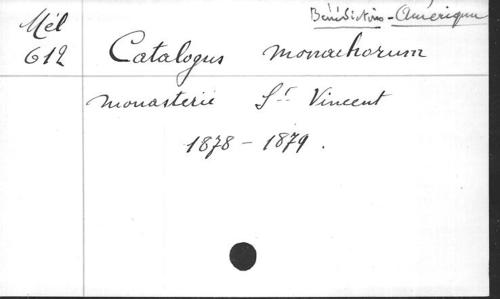 Bénédictins - Amérique
Mél
612
Catalogus monachorum
monasterii St Vincent
1878 - 1879.